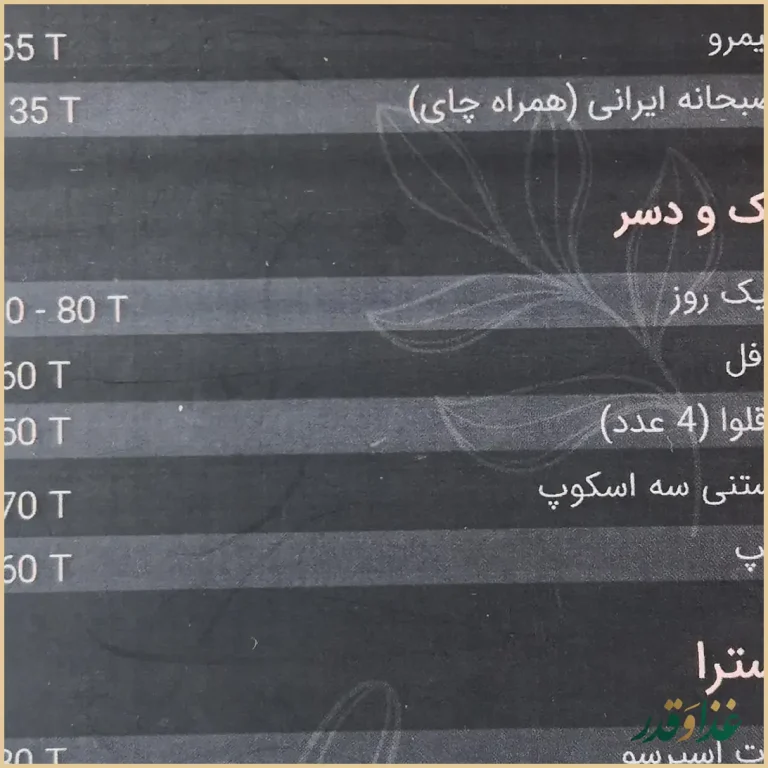 یمرو 65 T
صبحانه ایرانی (همراه چای) 35 T
ک و دسر
یک روز 0 - 80 T
افل 60 T
اقلوا (4 عدد) 50 T
ستنی سه اسکوپ 70 T
پ 60 T
سترا
ت اسپرسو 30 T
غذا و قدر